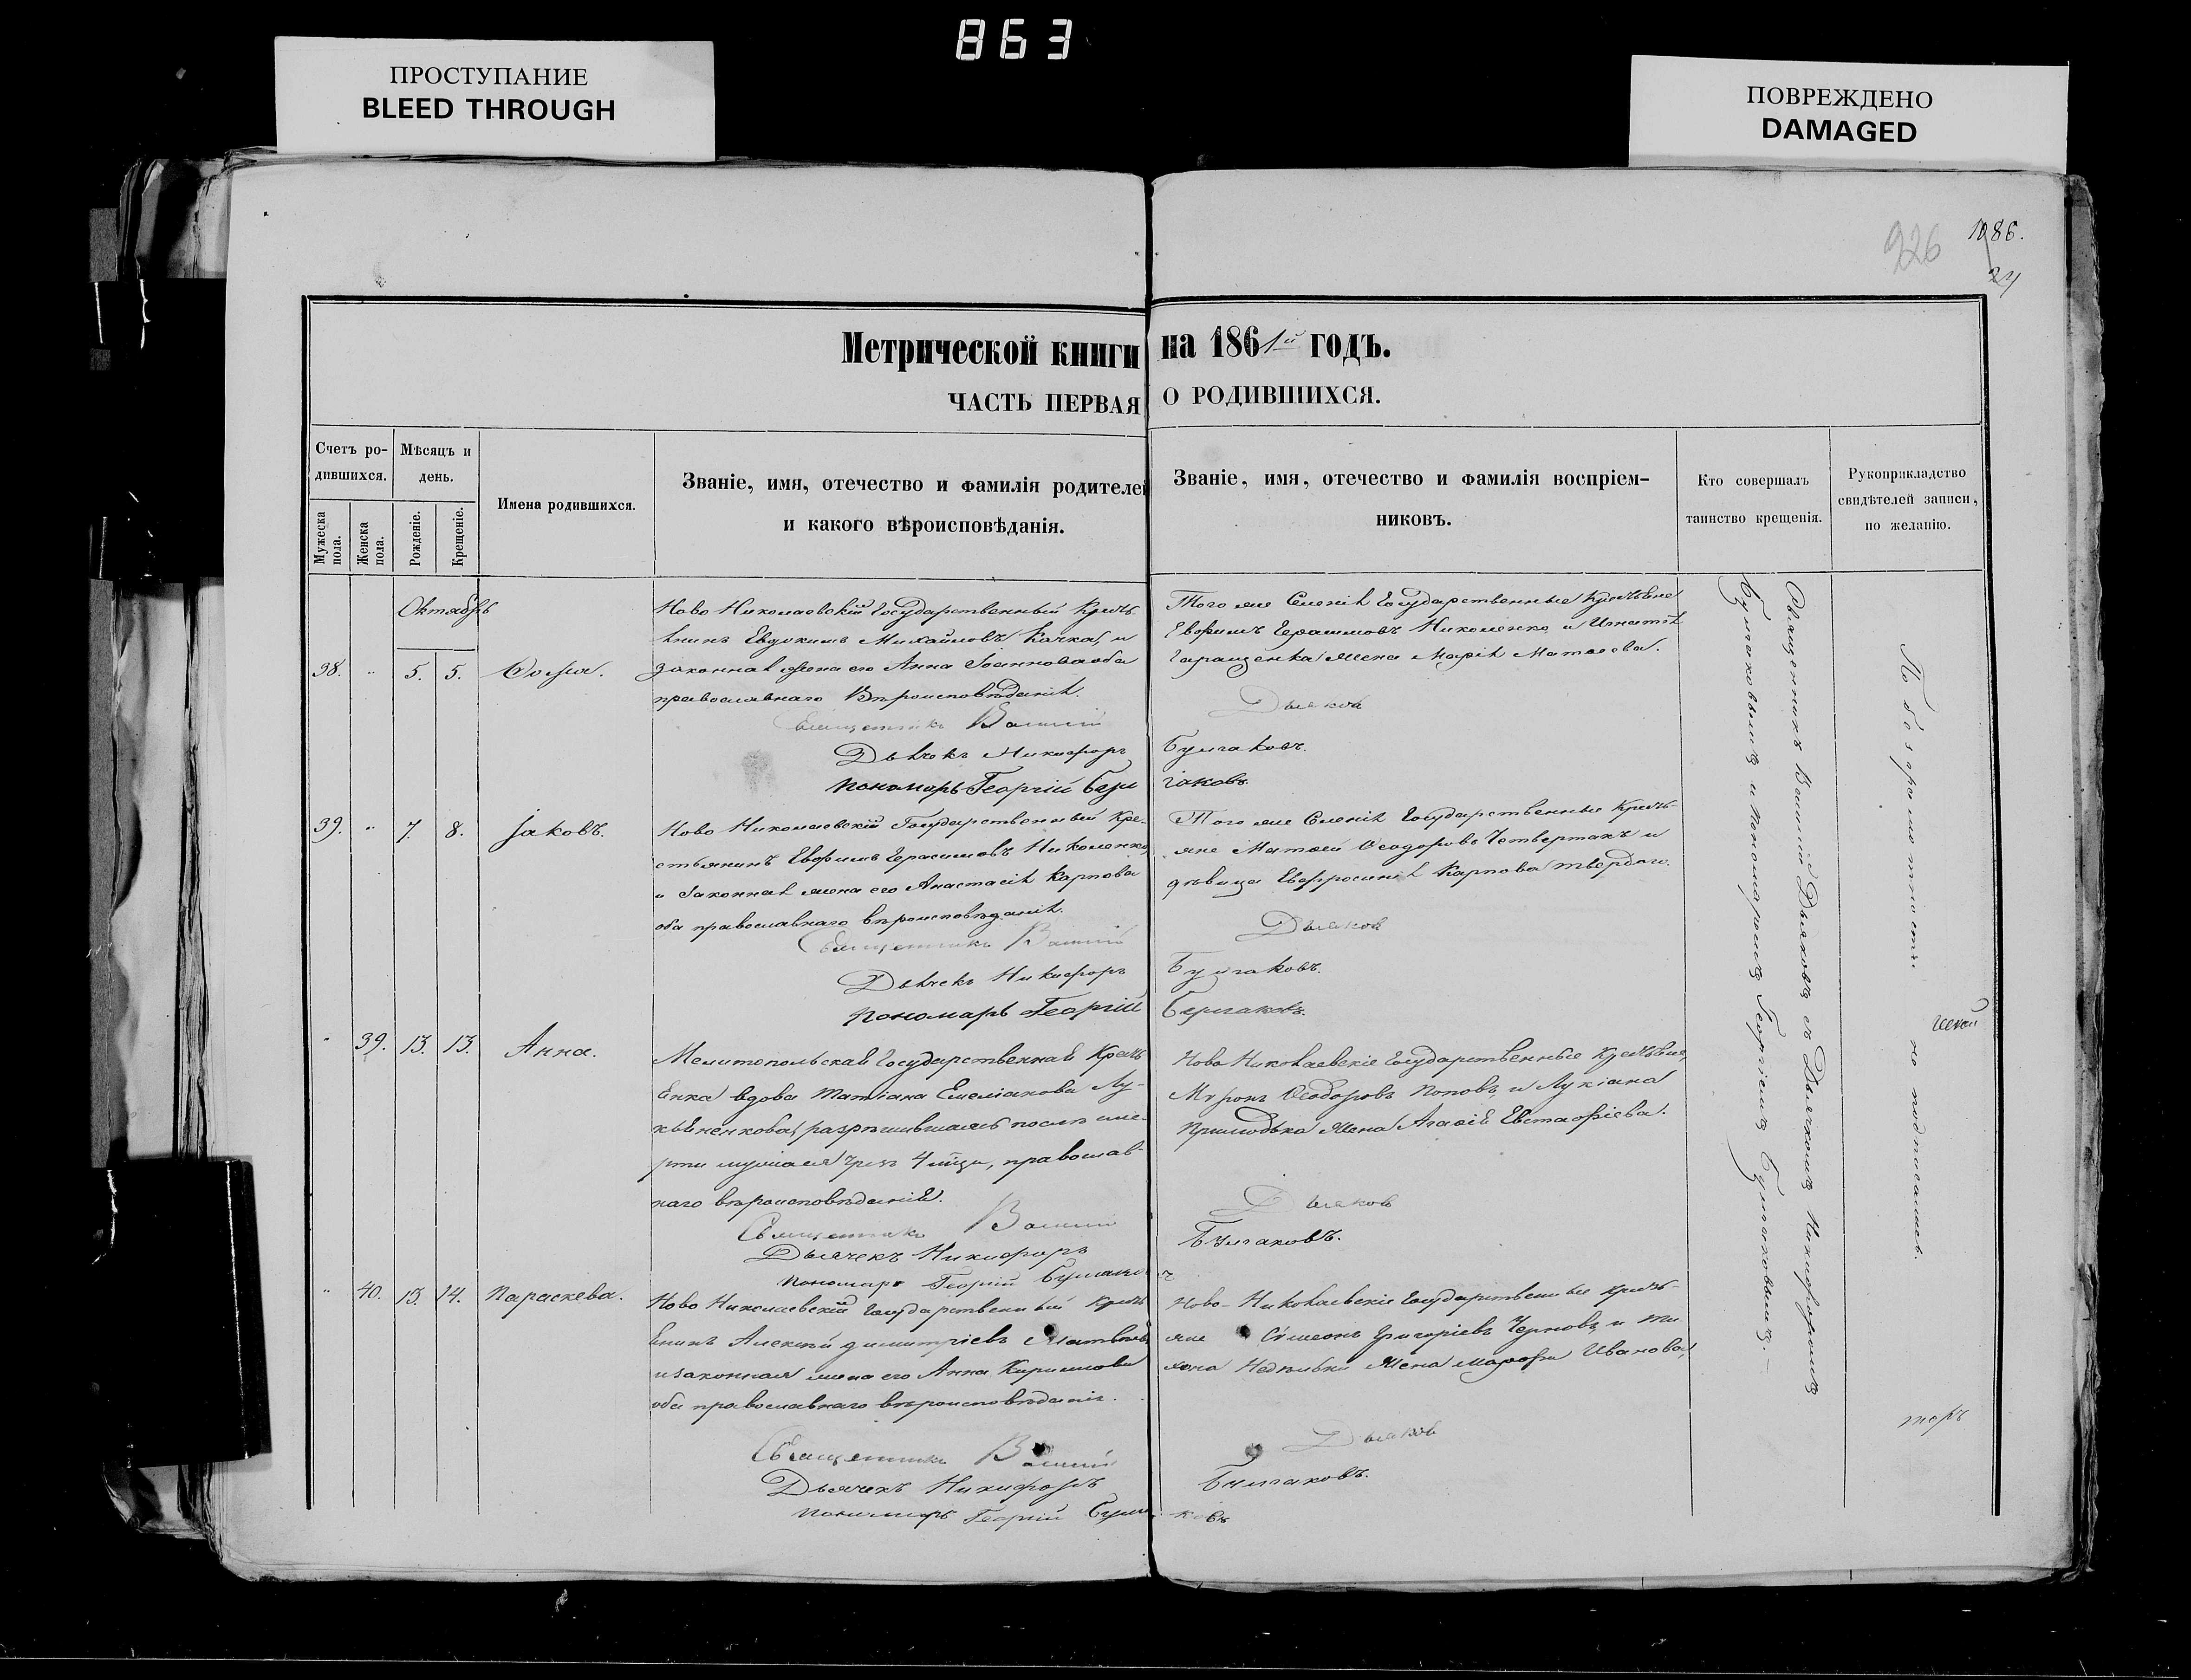 863
ПРОСТУПАНИЕ
BLEED THROUGH
ПОВРЕЖДЕНО
DAMAGED
926
1086.
24
Метрической книги на 1861й годъ.
ЧАСТЬ ПЕРВАЯ О РОДИВШИХСЯ.
Счетъ ро-
дившихся.
Мѣсяцъ и
день.
Мужеска
пола.
Женска
пола.
Рожденіе.
Крещеніе.
Имена родившихся.
Званіе, имя, отечество и фамилія родителей
и какого вѣроисповѣданія.
Званіе, имя, отечество и фамилія воспріем-
никовъ.
Кто совершалъ
таинство крещенія.
Рукоприкладство
свидѣтелей записи,
по желанію.
Октябрь
38. " 5. 5.
Ново Николаевскій Государственный Кресть
янинъ Евдокимъ Михайловъ Качка, и
законная жена его Анна Іоаннова оба
православнаго Вѣроисповѣданія.
Священникъ Василій
Дьячекъ Никифоръ
Пономарь Георгій Булга
Того же Селенія Государственные Крестьяне
Евфимъ Герасимовъ Николенко и Игнатія
Гаращенка жена Марія Матѳеева.
Дьяков
Булгаковъ.
гаковъ.
39. " 7. 8. Іаковъ.
Ново Николаевскій Государственный Кре-
стьянинъ Евфимъ Герасимовъ Николенко,
и Законная жена его Анастасія Карпова
оба православнаго вѣроисповѣданія.
Священникъ Василій
Дьячекъ Никифоръ
Пономарь Георгій
Того же Селенія Государственные Кресть-
яне Матѳей Ѳеодоровъ Четвертакъ и
дѣвица Евфросинія Карпова
Дьяков
Булгаковъ.
Булгаковъ.
" 39. 13. 13. Анна.
Мелитопольская Государственная Кресть
янка вдова Татіана Емеліанова Лу-
кьяненкова, разрѣшившаясь послѣ сме-
рти мужа ея чрез 4 мѣца, православ-
наго вѣроисповѣданія.
Священникъ Василій
Дьячекъ Никифоръ
Пономарь Георгій Булгаков
Ново Николаевскіе Государственные Крестьяне,
Мѵронъ Ѳеодоровъ Поповъ, и Лукіана
Приходька жена Агаѳія Евстафіева.
Дьяков
Булгаковъ.
" 40. 13. 14. Параскева.
Ново Николаевскій Государственный Кресть
янинъ Алексій Димитріевъ
и законная жена его Анна Кириллова
оба православнаго вѣроисповѣданія.
Священникъ Василій
Дьячекъ Никифоръ
Пономарь Георгій Булга
Ново-Николаевскіе Государственные Кресть-
яне Сѵмеонъ Григоріевъ Черновъ, и Ти
хона жена Марфа Иванова,
Дьяков
Булгаковъ.
ковъ
Священникъ Василій Дьяковъ съ Дьячкомъ Никифоромъ
Булгаковымъ и Пономаремъ Георгіемъ Булгаковымъ.—
По безграмотности не подписались.